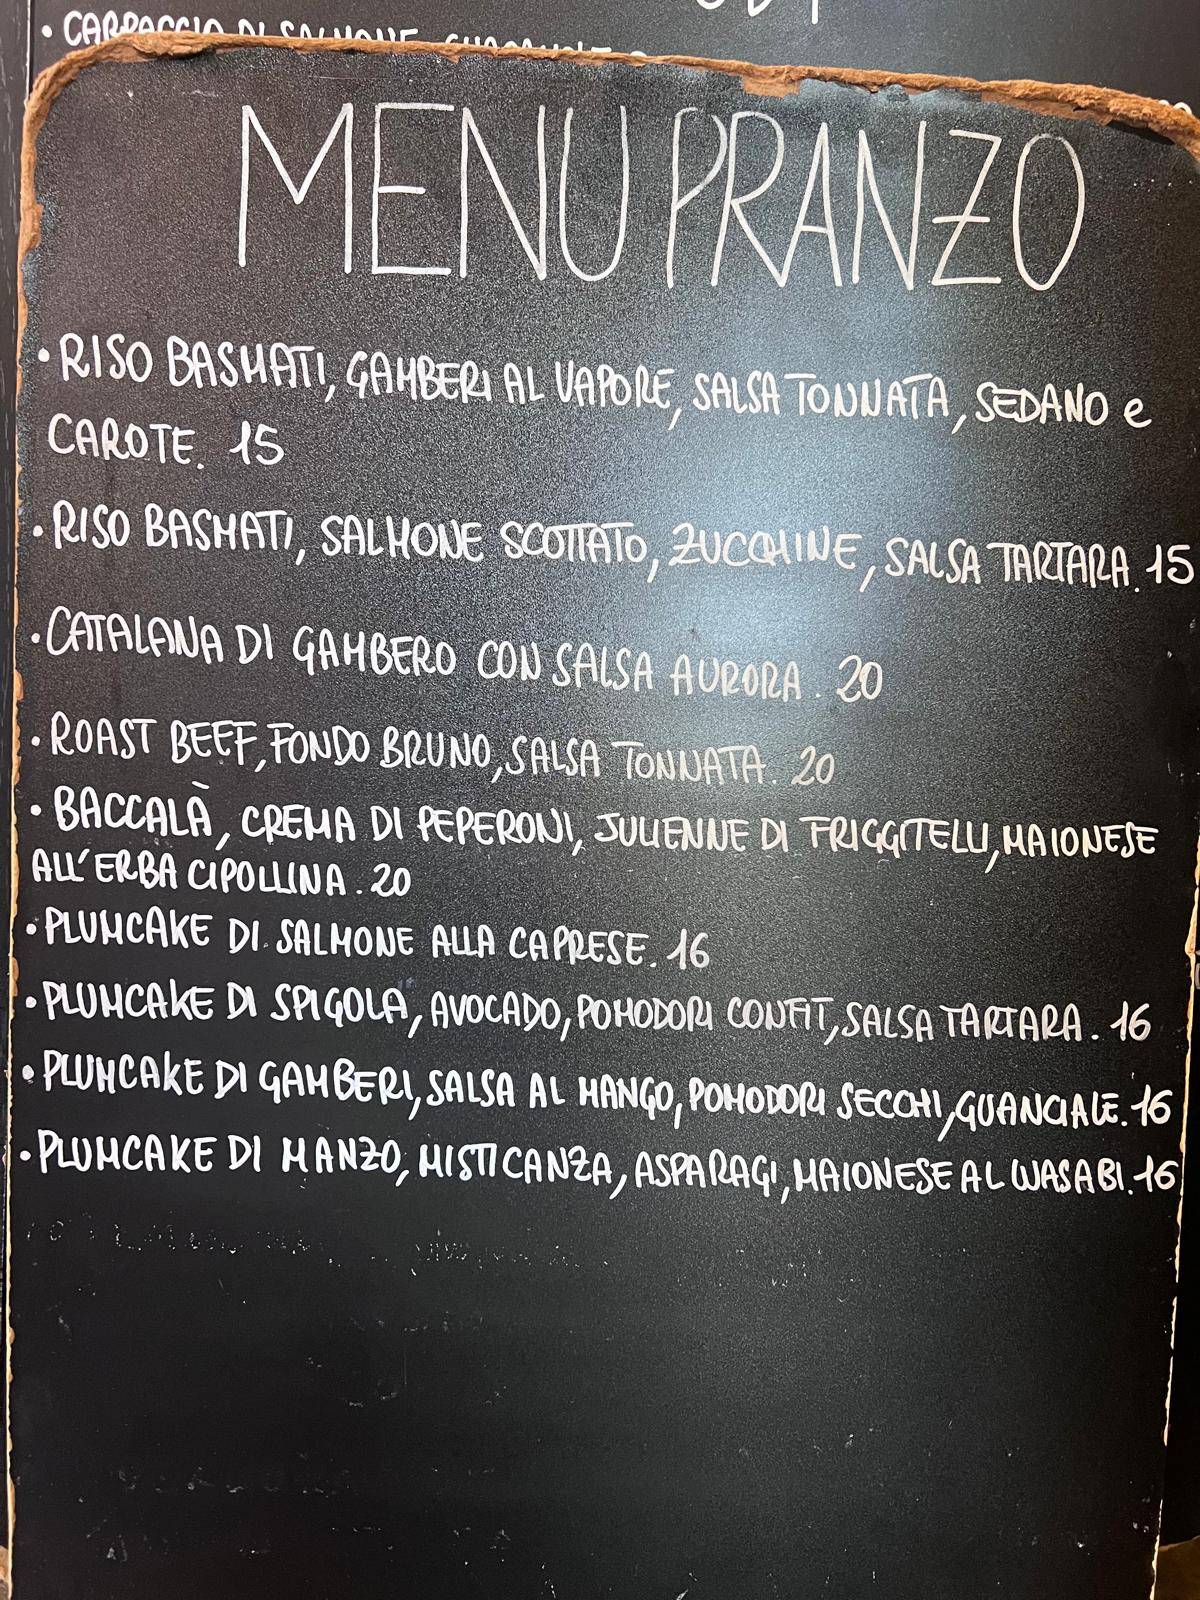 • CARPACCIO DI SALMONE, GUACAMOLE
MENU PRANZO
• RISO BASMATI, GAMBERI AL VAPORE, SALSA TONNATA, SEDANO e
CAROTE. 15
• RISO BASMATI, SALMONE SCOTTATO, ZUCCHINE, SALSA TARTARA. 15
• CATALANA DI GAMBERO CON SALSA AURORA. 20
• ROAST BEEF, FONDO BRUNO, SALSA TONNATA. 20
• BACCALÀ, CREMA DI PEPERONI, JULIENNE DI FRIGGITELLI, MAIONESE
ALL'ERBA CIPOLLINA. 20
• PLUMCAKE DI SALMONE ALLA CAPRESE. 16
• PLUMCAKE DI SPIGOLA, AVOCADO, POMODORI CONFIT, SALSA TARTARA. 16
• PLUMCAKE DI GAMBERI, SALSA AL MANGO, POMODORI SECCHI, GUANCIALE. 16
• PLUMCAKE DI MANZO, MISTICANZA, ASPARAGI, MAIONESE AL WASABI. 16